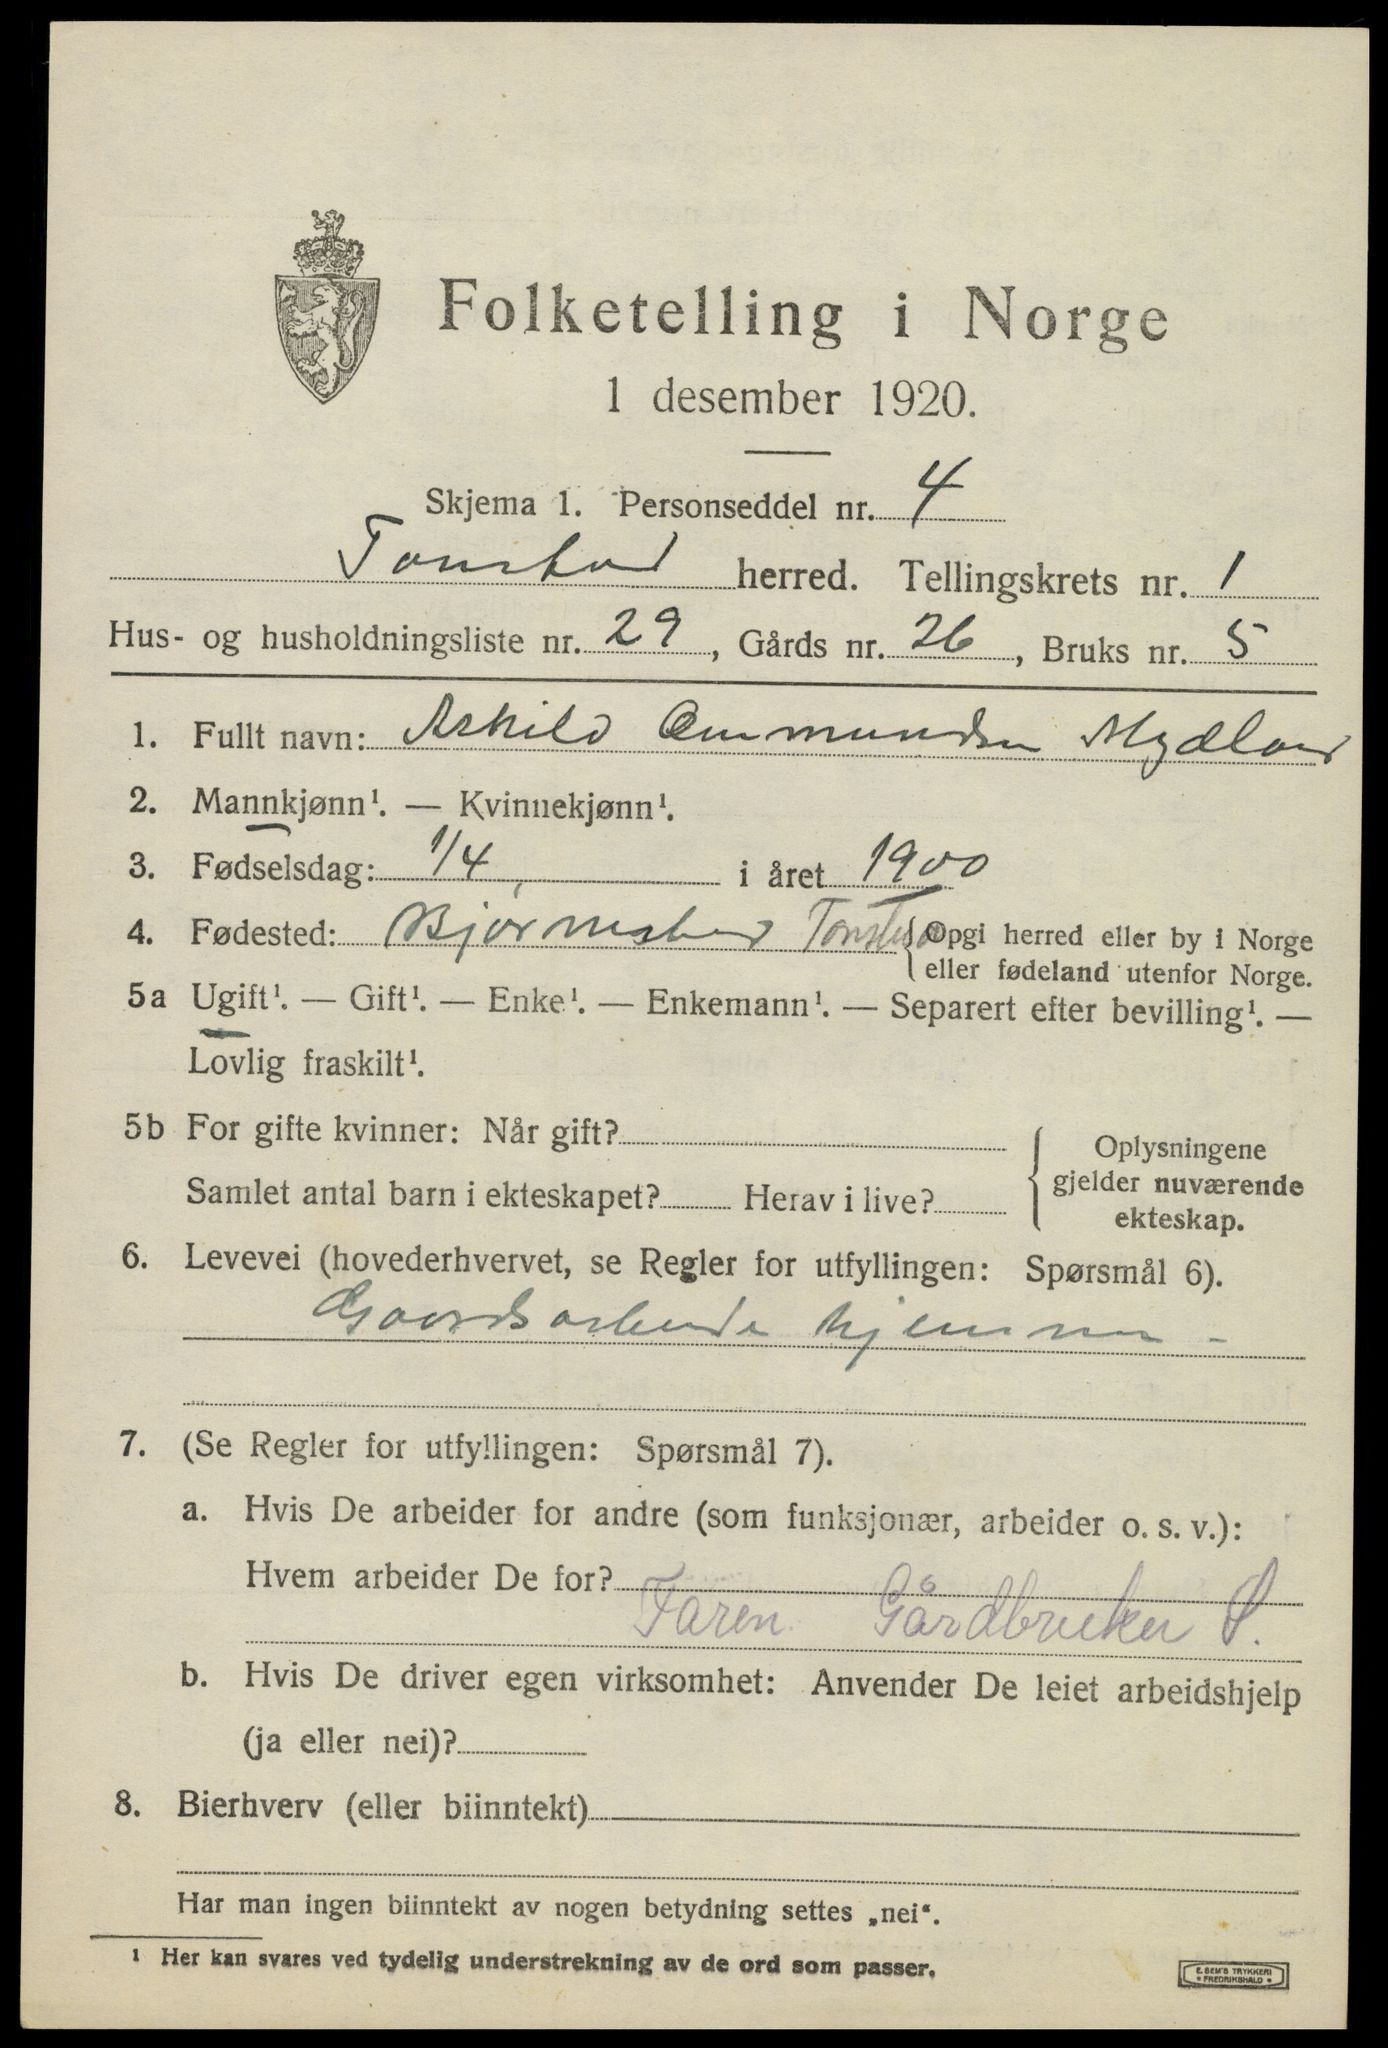 Folketelling i Norge
1 desember 1920.
Skjema 1. Personseddel nr. 4
Tonstad herred. Tellingskrets nr. 1
Hus- og husholdningsliste nr. 29, Gårds nr. 26, Bruks nr. 5
1. Fullt navn: Askild Ommundsen Mydland
2. Mannkjønn¹. — Kvinnekjønn¹.
3. Fødselsdag: 1/4 i året 1900
4. Fødested: Bjørnestad Tonstad {Opgi herred eller by i Norge
eller fødeland utenfor Norge.
5a Ugift¹. — Gift¹. — Enke¹. — Enkemann¹. — Separert efter bevilling¹. —
Lovlig fraskilt¹.
5b For gifte kvinner: Når gift?
Samlet antal barn i ekteskapet? Herav i live?
{ Oplysningene
gjelder nuværende
ekteskap.
6. Levevei (hovederhvervet, se Regler for utfyllingen: Spørsmål 6).
Gaardsarbeide hjemme -
7. (Se Regler for utfyllingen: Spørsmål 7).
a. Hvis De arbeider for andre (som funksjonær, arbeider o. s. v.):
Hvem arbeider De for?
Faren Gårdbruker S.
b. Hvis De driver egen virksomhet: Anvender De leiet arbeidshjelp
(ja eller nei)?
8. Bierhverv (eller biinntekt)
Har man ingen biinntekt av nogen betydning settes „nei“.
¹ Her kan svares ved tydelig understrekning av de ord som passer.
E. SEM'S TRYKKERI
• FREDRIKSHALD •